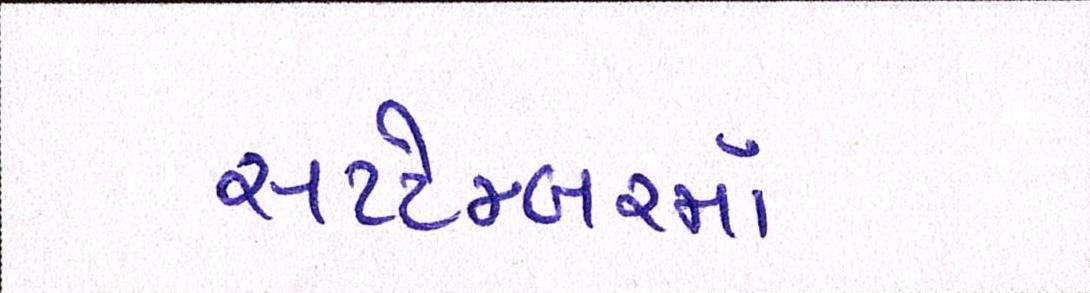 સપ્ટેમ્બરમાં